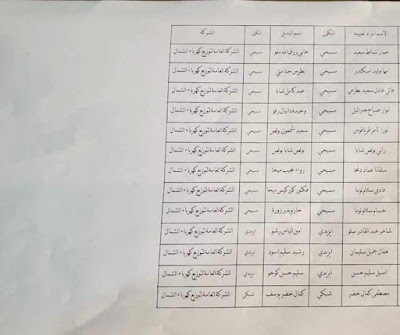 الاسم المراد تعيينه المكون اسم البديل المكون الشركة
عمار نشاط سعيد مسيحي هاني رزق الله متو مسيحي الشركة العامة لتوزيع كهرباء الشمال
مها وليد اسكندر مسيحي بطرس حنا متي مسيحي الشركة العامة لتوزيع كهرباء الشمال
فادي عادل سعيد بطرس مسيحي عبد كامل شابا مسيحي الشركة العامة لتوزيع كهرباء الشمال
انوار صباح جبرائيل مسيحي وحيدة دانيال رمو مسيحي الشركة العامة لتوزيع كهرباء الشمال
نورا ثامر فرياقوس مسيحي سعيد شمعون بولص مسيحي الشركة العامة لتوزيع كهرباء الشمال
رامي بولص شابا مسيحي بولص شابا بولص مسيحي الشركة العامة لتوزيع كهرباء الشمال
ستفانا عماد دنخا مسيحي رواء نجيب ميخا مسيحي الشركة العامة لتوزيع كهرباء الشمال
فادي سلام توما مسيحي فكتور كوركيس ميخا مسيحي الشركة العامة لتوزيع كهرباء الشمال
حسام سلام توما مسيحي حازم بدر زورا مسيحي الشركة العامة لتوزيع كهرباء الشمال
شاهر عبد القادر سلو ايزيدي امين الياس رشو ايزيدي الشركة العامة لتوزيع كهرباء الشمال
هفال جميل سليمان ايزيدي رشيد سليم اسود ايزيدي الشركة العامة لتوزيع كهرباء الشمال
اسيل سليم حسن ايزيدي سليم حسن كوجو ايزيدي الشركة العامة لتوزيع كهرباء الشمال
مصطفى كمال خضر شبكي كمال خضر يوسف شبكي الشركة العامة لتوزيع كهرباء الشمال